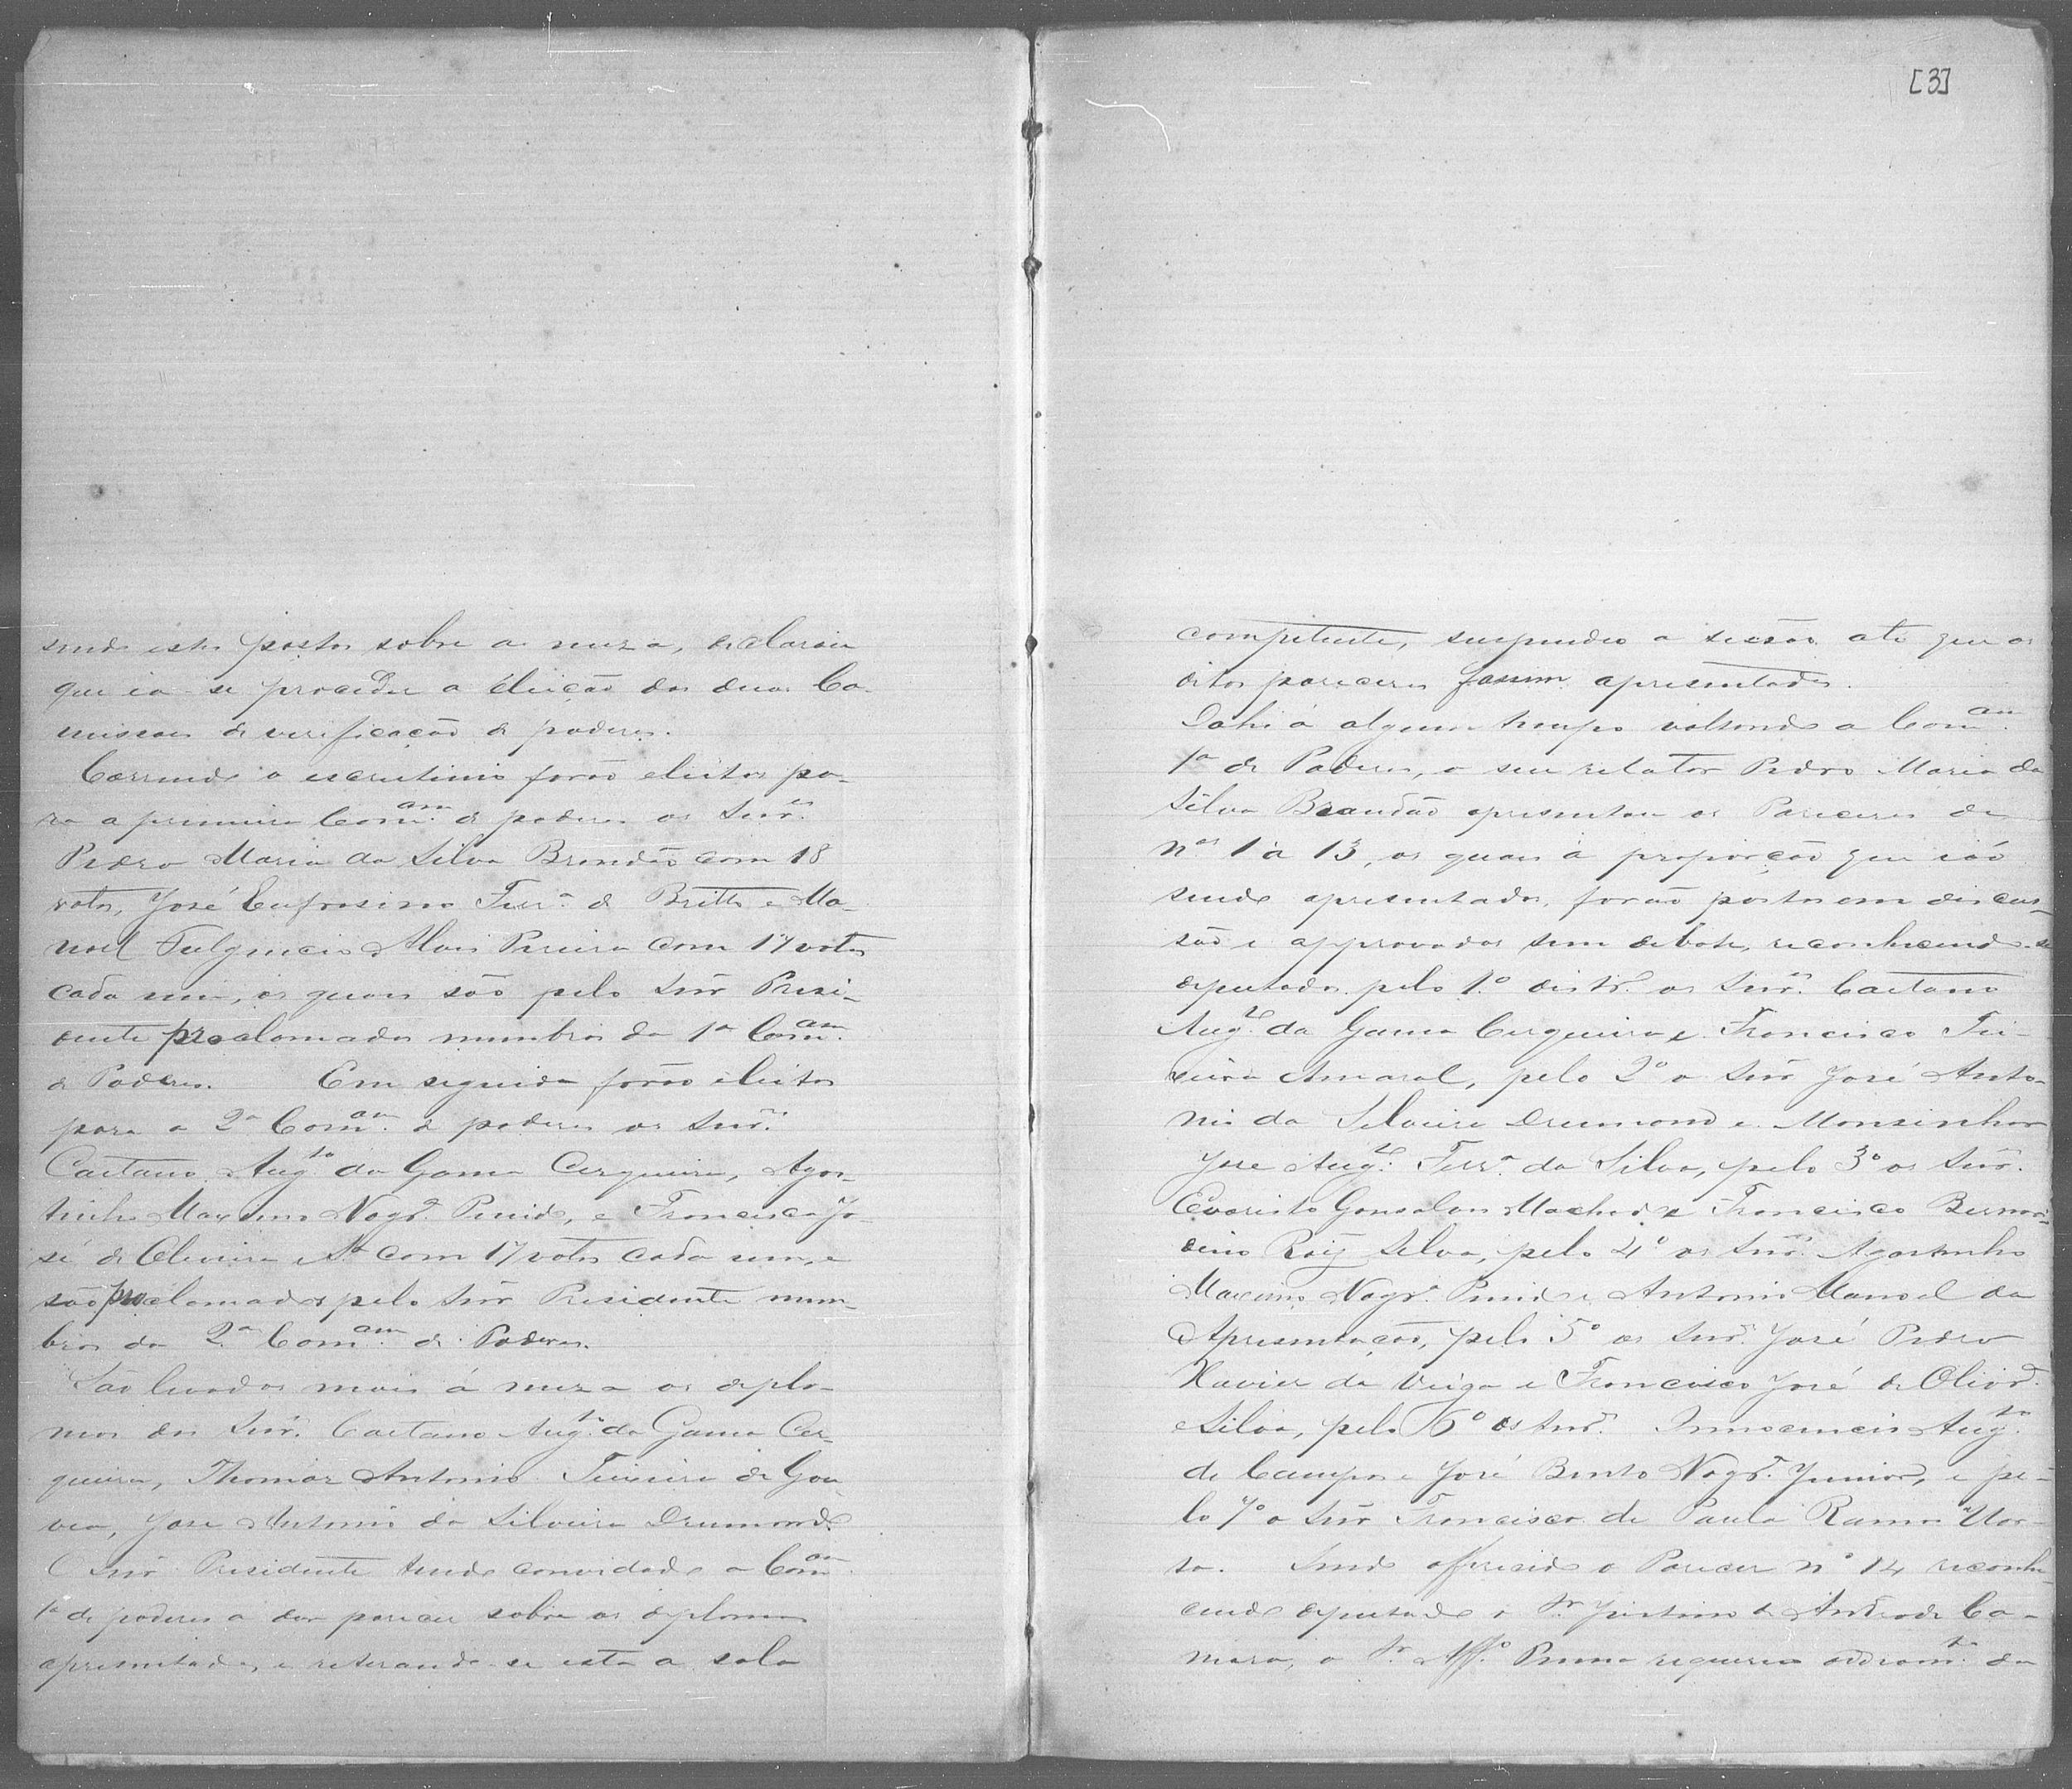 sendo estes postos sobre a meza, declarou
que ia-se proceder a eleição das duas Co-
missoes de verificação de poderes.
Correndo o escrutinio forão eleitos pa-
ra a primeira Com.am de poderes os Snr.es
Pedro Maria da Silva Brandão com 18
votos, José Eufrosino Ferr.a de Britto e Ma-
noel Fulgencio Alves Pereira com 17 votos
cada um, os quaes são pelo Snr Presi-
dente proclamados membros da 1a Com.am
de Poderes. Em seguida forão eleitos
para a 2a Com.am de poderes os Snr.es
Caetano Aug.to da Gama Cerqueira, Agos-
tinho Maximo Nogr.a Penido, e Francisco Jo-
sé de Oliveira e S.a com 17 votos cada um, e
são proclamados pelo Snr Presidente mem-
bros da 2a Com.am de Poderes.
São levados mais á meza os diplo-
mas dos Snr.es Caetano Aug.to da Gama Cer-
queira, Thomaz Antonio Teixeira de Gou-
vea, Jose Antonio da Silveira Drumond.
O Snr Presidente tendo convidado a Com.am
1a de poderes a dar parecer sobre os diplomas
apresentados, e retirando-se esta a sala
[3]
competente, suspendeo a sessão até que os
ditos pareceres fossem apresentados.
Dahi á algum tempo voltando a Com.am
1a de Poderes, o seu relator Pedro Maria da
Silva Brandão apresentou os Pareceres de
nos 1 á 13, os quaes á proporção que ião
sendo apresentados, forão postos em discus-
são e approvados sem debate, reconhecendo-se
deputados pelo 1.o distr.o os Snr.es Caetano
Aug.to da Gama Cerqueira e Francisco Tei-
xeira Amaral, pelo 2o o Snr José Anto-
nio da Silveira Drumond e Monsenhor
Jose Aug.to Ferr.a da Silva, pelo 3o os Snr.es
Evaristo Gonsalves Machado e Francisco Bernar-
dino Roiz Silva, pelo 4o os Snr.es Agostinho
Maximo Nogr.a Penido e Antonio Manoel da
Apresentação, pelo 5o os Snr.es José Pedro
Xavier da Veiga e Francisco José de Olivr.a
e Silva, pelo 6o os Snr.es Innocencio Aug.to
de Campos e José Bento Nogr.a Junior, e pe-
lo 7o o Snr Francisco de Paula Ramos Hor-
ta. Sendo offerecido o Parecer no 14 reconhe-
cendo deputado o Sr. Justino de Andrade Ca-
mara, o Sr. Aff.o Penna requereo adiam.to da